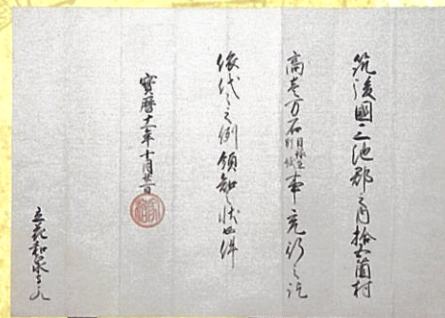 筑後國三池郡之内拾五箇村
高壱万石目録在別紙事充行之訖
依代々之例領知之状如件
寳暦十一年十月廿一日
立花和泉守とのへ